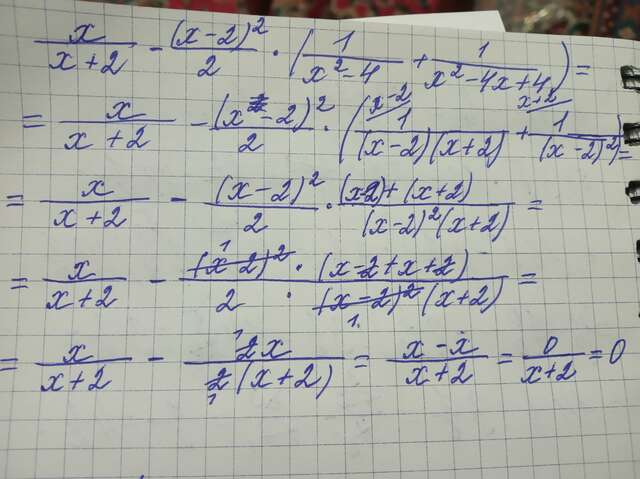 x/(x+2) - (x-2)²/2 · (1/(x²-4) + 1/(x²-4x+4)) =
= x/(x+2) - (x-2)²/2 · (1/((x-2)(x+2)) + 1/(x-2)²) = x-2 x+2
= x/(x+2) - (x-2)²/2 · ((x-2)+(x+2))/((x-2)²(x+2)) =
= x/(x+2) - ((x-2)² · (x-2+x+2))/(2 · (x-2)²(x+2)) = 1 1
= x/(x+2) - 2x/(2(x+2)) = (x-x)/(x+2) = 0/(x+2) = 0 1 1